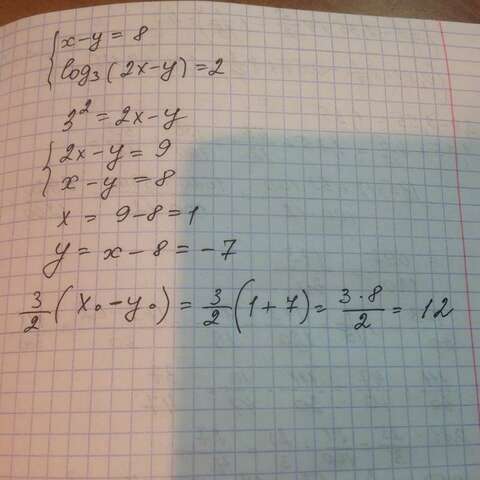 { x-y = 8
{ log₃(2x-y) = 2
3² = 2x-y
{ 2x-y = 9
{ x-y = 8
x = 9-8 = 1
y = x-8 = -7
3/2 (x₀-y₀) = 3/2 (1+7) = 3·8/2 = 12